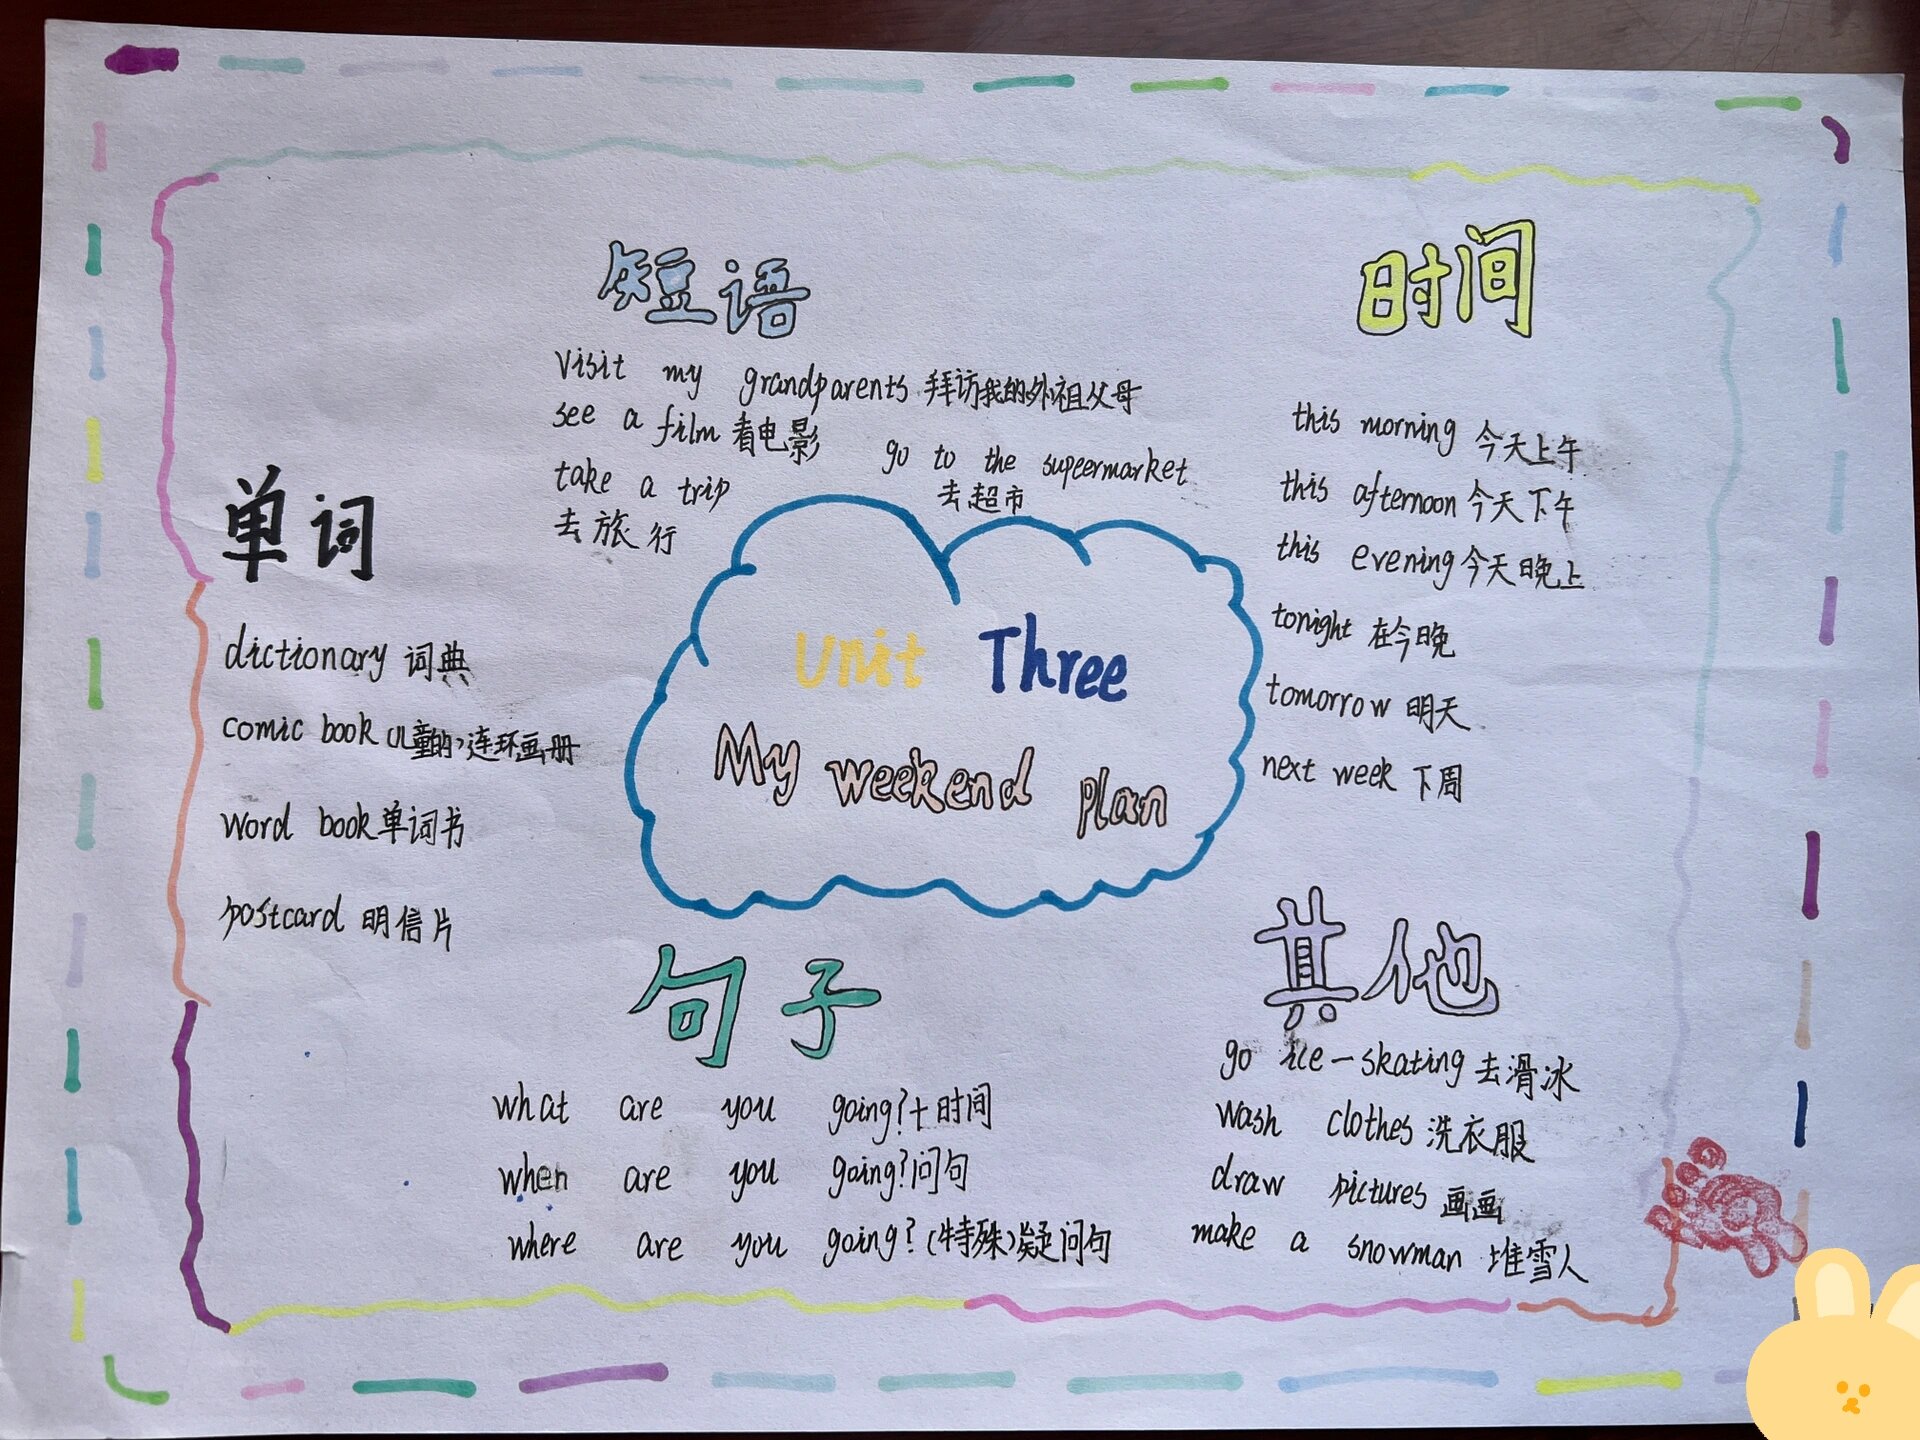 短语
visit my grandparents 拜访我的外祖父母
see a film 看电影
go to the supeermarket
去超市
take a trip
去旅行
时间
this morning 今天上午
this afternoon 今天下午
this evening 今天晚上
tonight 在今晚
tomorrow 明天
next week 下周
单词
dictionary 词典
comic book (儿童的)连环画册
word book 单词书
postcard 明信片
Unit Three
My weekend plan
句子
what are you going?+时间
when are you going?问句
where are you going?(特殊)疑问句
其他
go ice-skating 去滑冰
wash clothes 洗衣服
draw pictures 画画
make a snowman 堆雪人